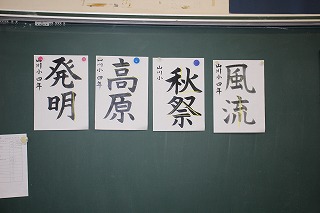 発明
山川小 四年
高原
山川小 四年
秋祭
山川小
風流
山川小 四年